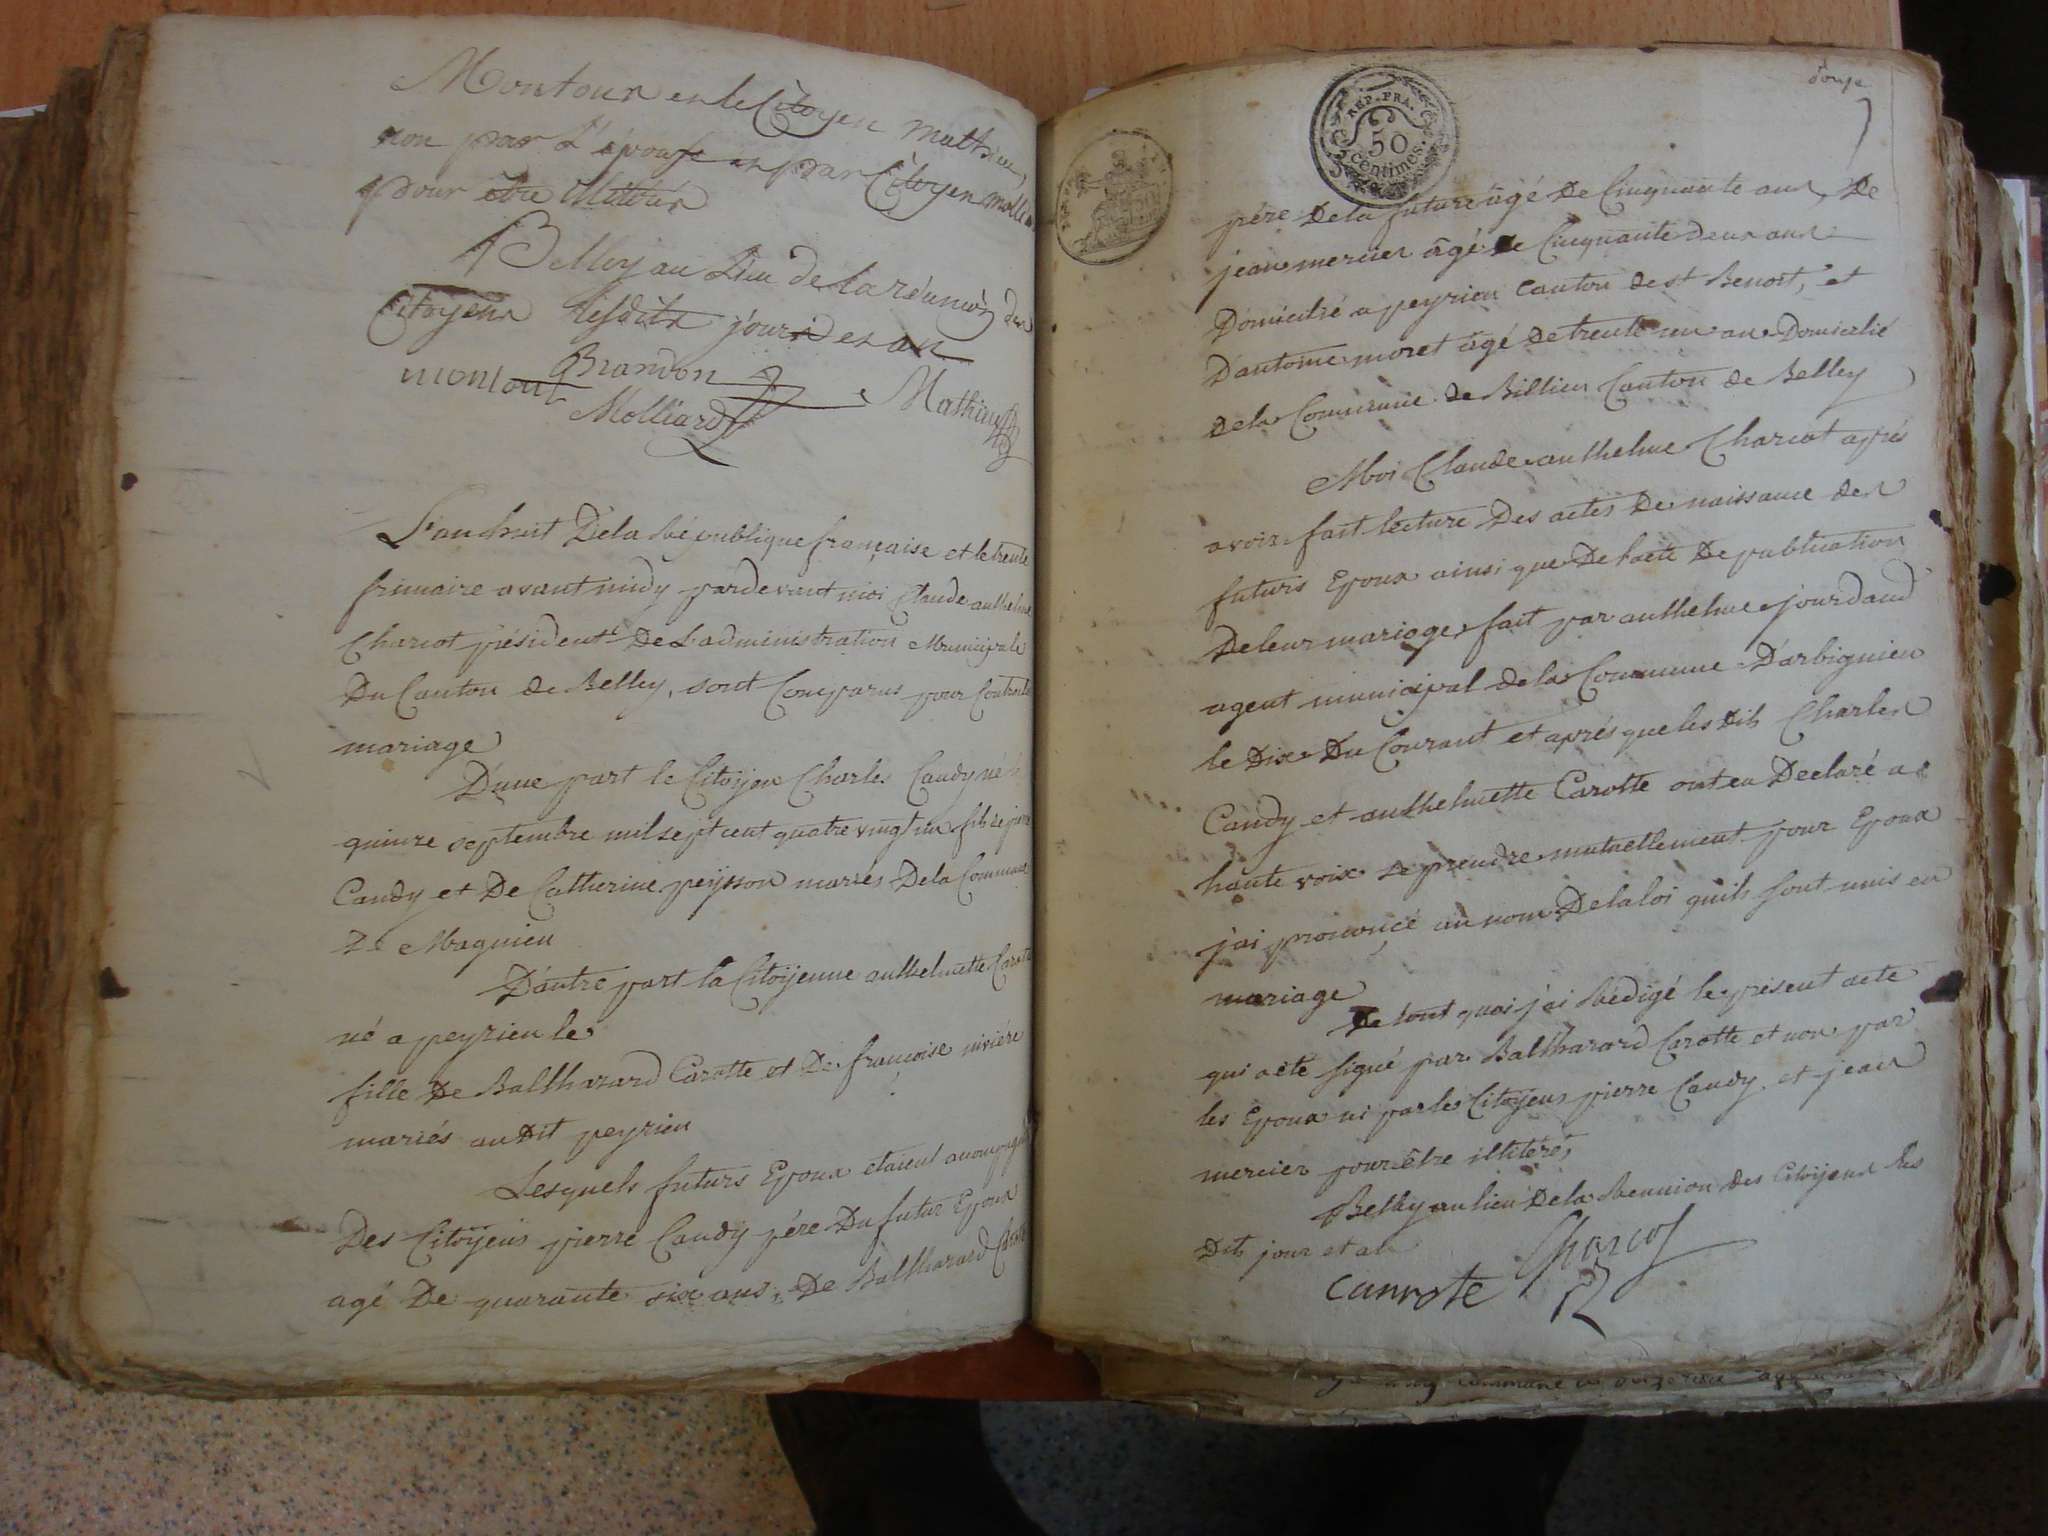 Montour et le Citoyen Mathieu
non par l'épouse et par Citoyen Molli
pour être illitéré
Belley au Lieu de la réunion des
Citoyens lesdits jours et an
montour Brandon
Molliard Mathieu
L'an huit De la République française et le trente
frimaire avant midy pardevant moi Claude anthelme
Charcot président De L'administration Municipale
Du Canton de Belley, sont Comparus pour Contracter
mariage
D'une part le Citoyen Charles Candy né le
quinze septembre mil sept cent quatre vingt un fils de pierre
Candy et De Catherine peysson mariés De la Commune
De Magnieu
D'autre part la Citoyenne anthelmette Carotte
né a peyrieu le
fille De Balthazard Carotte et De françoise rivière
mariés au Dit peyrieu
Lesquels futurs Epoux etaient accompagnés
Des Citoyens pierre Candy pére Du futur Epoux
agé De quarante six ans, De Balthazard Carotte
REP. FRA.
50
centimes.
douze
7
pére De la future âgé De Cinquante ans, De
jean mercier âgé De Cinquante deux ans
Domicilié a peyrieu Canton de st Benoit, et
D'antoine moret âgé De trente un ans Domicilié
De la Commune de Billieu Canton de Belley
Moi Claude anthelme Charcot aprés
avoir fait lecture Des actes De naissance des
futurs Epoux ainsi que De l'acte De publication
De leur mariage fait par anthelme jourdand
agent municipal de la Commune D'arbignieu
le Dix Du Courant et aprés que les dits Charles
Candy et anthelmette Carotte ont eu Declaré a
haute voix se prendre mutuellement pour Epoux
j'ai prononcé au nom De la loi qu'ils sont unis en
mariage
De tout quoi j'ai Rédigé le present acte
qui a été signé par Balthazard Carotte et non par
les Epoux ni par les Citoyens pierre Candy et jean
mercier pour être illitérés
Belley au lieu De la Reunion des Citoyens les
Dits jour et an
Charcot
canrote